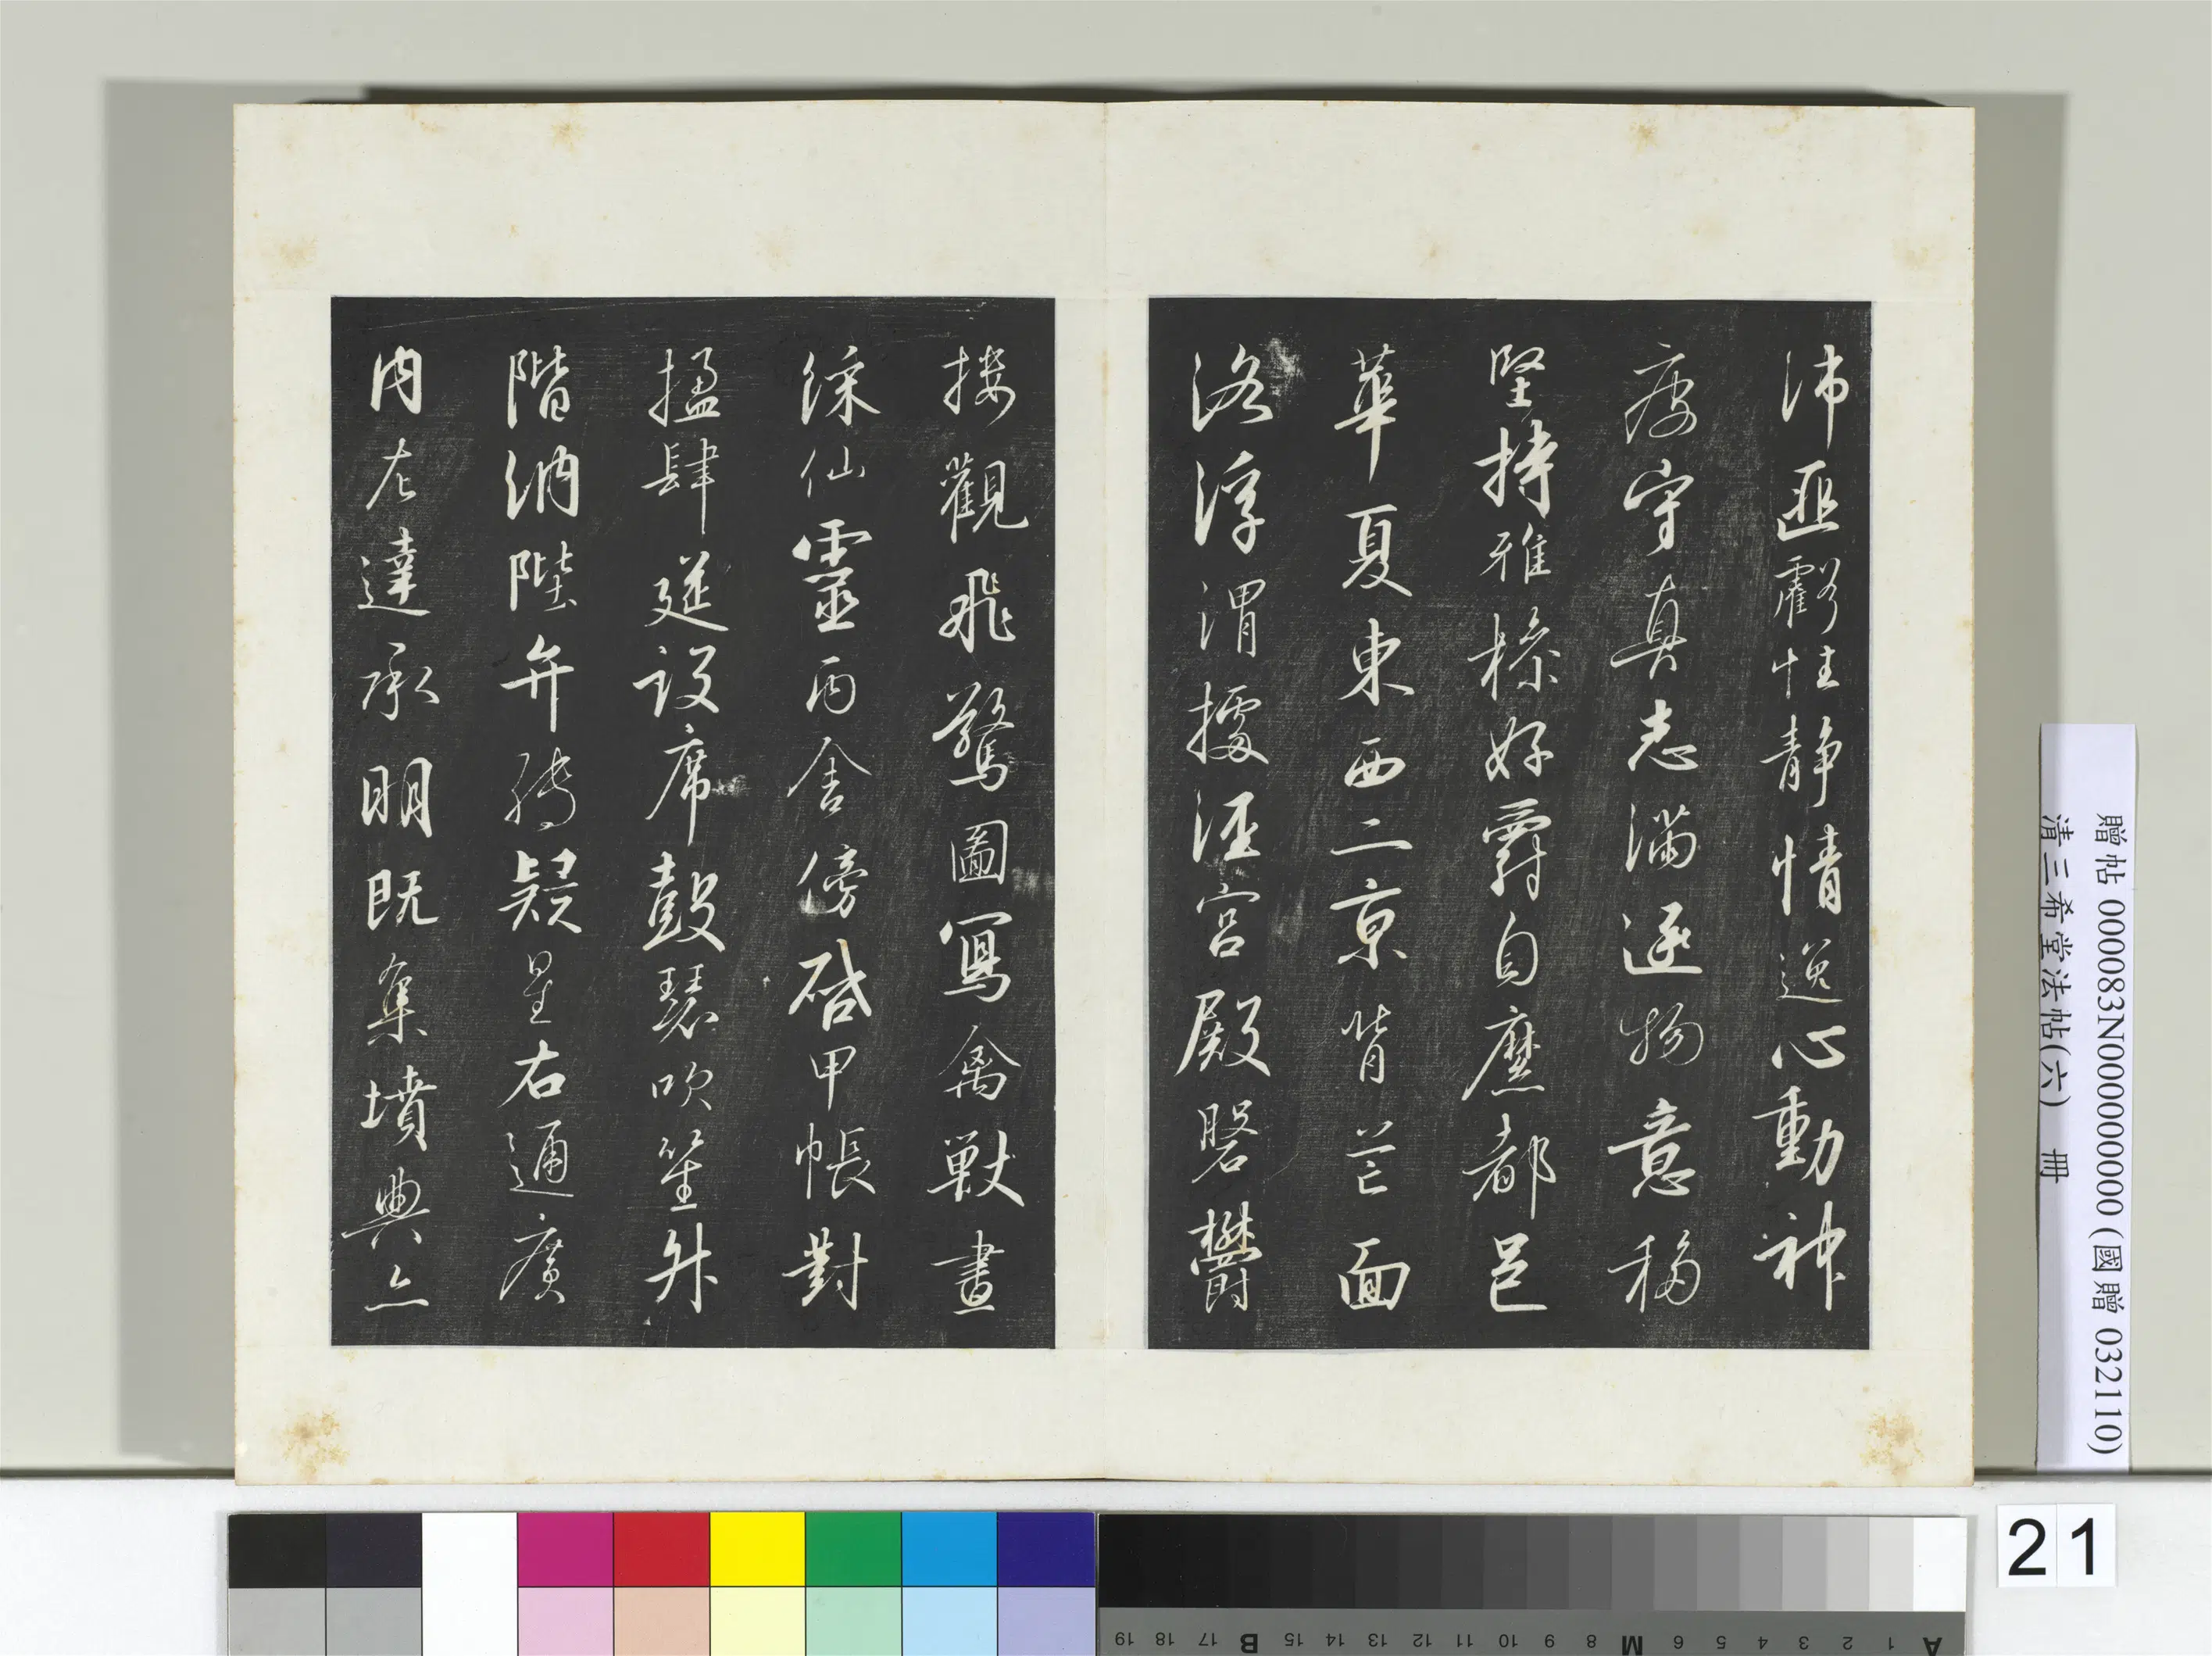 沛匪虧性静情逸心動神
疲守真志滿逐物意移
堅持雅操好爵自縻都邑
華夏東西二京背芒面
洛浮渭據涇宮殿磐欝
樓觀飛驚圖寫禽獸畫
綵仙靈丙舍傍啟甲帳對
楹肆筵設席鼓瑟吹笙升
階納陛弁轉疑星右通廣
內左達承明既集墳典亦
贈帖 000083N000000000 (國贈 032110)
清三希堂法帖(六) 冊
21
A 1 2 3 4 5 6 M 8 9 10 11 12 13 14 15 B 17 18 19